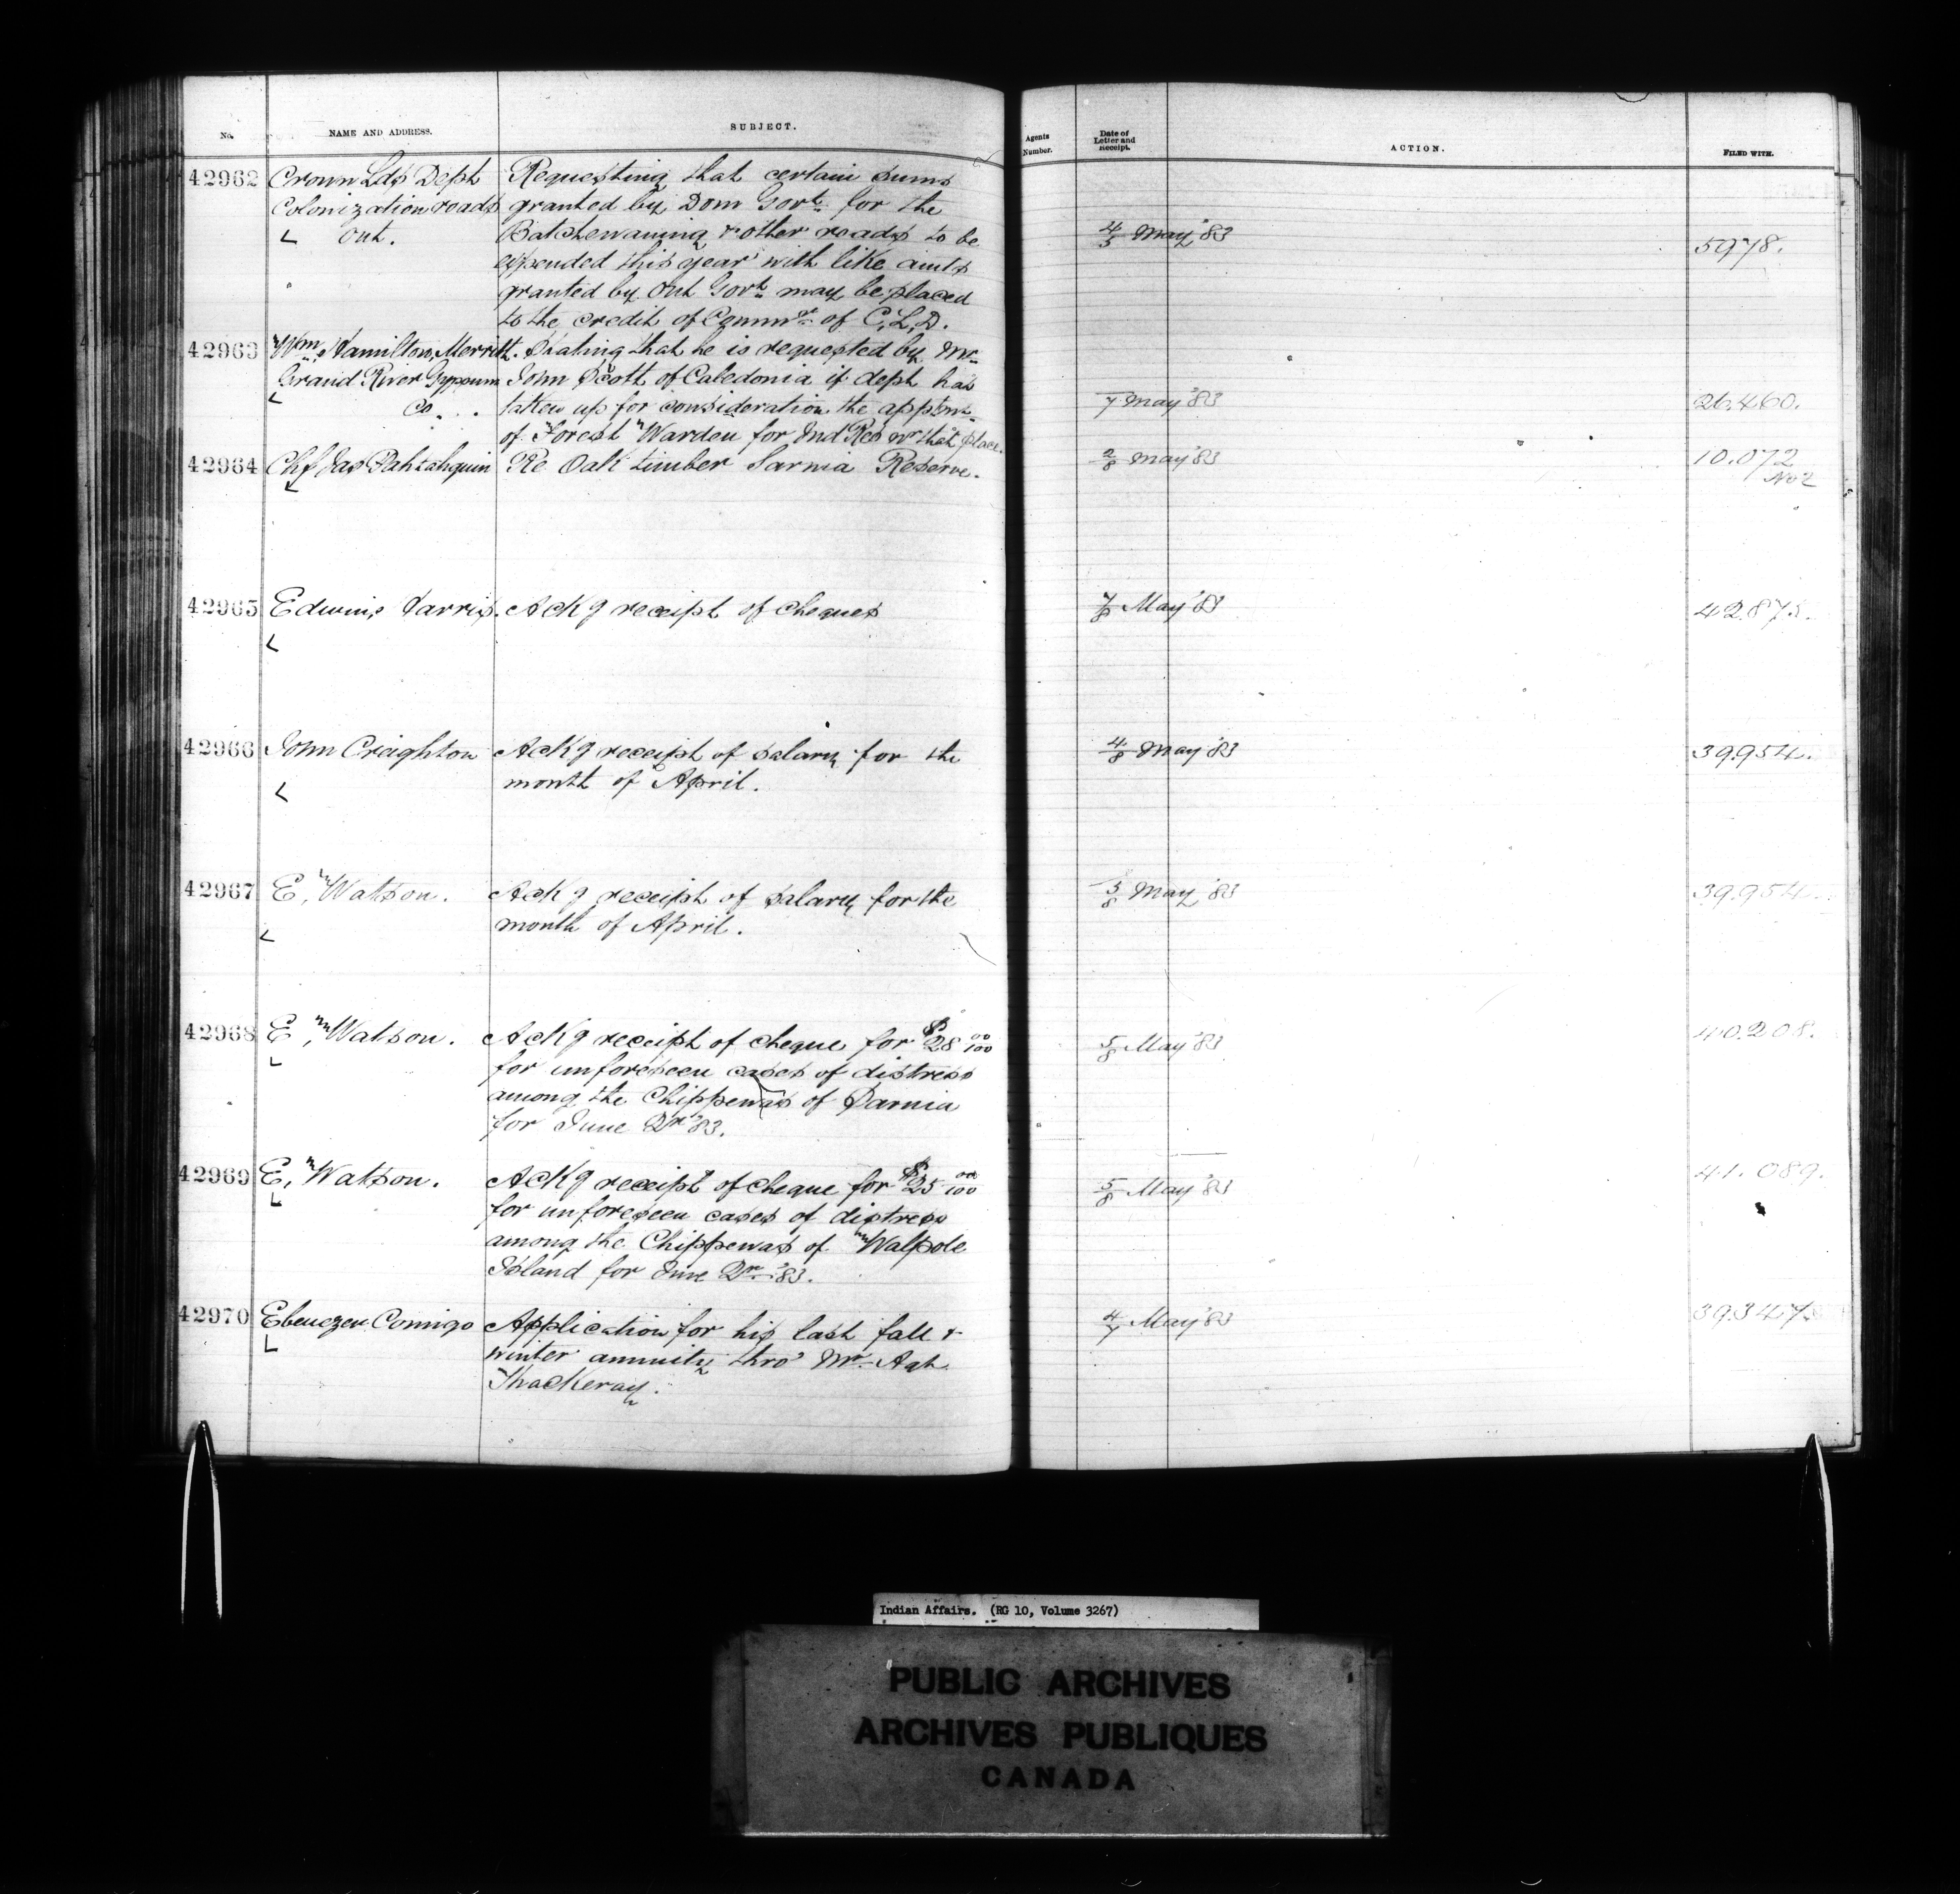 No. NAME AND ADDRESS. SUBJECT. Agents Number. Date of Letter and Receipt. ACTION. FILED WITH.
42962 Crown Lds Dept Requesting that certain sums
Colonization roads granted by Dom Govt. for the
Ont. Batchewaning & other roads to be 4/5 May '83 5978.
expended this year with like amts
granted by Ont Govt may be placed
to the credit of Commr of C. L. D.
42963 Wm Hamilton Merritt. Stating that he is requested by Mr
Grand River Gypsum John Scott of Caledonia if dept has
Co. taken up for consideration the apptmt 7 May '83 26.460.
of Forest Warden for Ind Res nr that place.
42964 Chf Jas Pahtahquin Re Oak timber Sarnia Reserve. 2/8 May '83 10.072
No 2
42965 Edwin Harris. Ackg receipt of cheques 7/8 May '83 42.875.
42966 John Creighton Ackg receipt of salary for the 4/8 May '83 39.954.
month of April.
42967 E. Watson. Ackg receipt of salary for the 5/8 May '83 39.954.
month of April.
42968 E. Watson. Ackg receipt of cheque for $28 00/100 5/8 May '83 40.208.
for unforeseen cases of distress
among the Chippewas of Sarnia
for June Qr '83.
42969 E. Watson. Ackg receipt of cheque for $25 00/100 5/8 May '83 41.089.
for unforeseen cases of distress
among the Chippewas of Walpole
Island for June Qr '83.
42970 Ebenezer Comigo Application for his last fall & 4/7 May '83 39.347
winter annuity thro' Mr Agt
Thackeray.
Indian Affairs. (RG 10, Volume 3267)
PUBLIC ARCHIVES
ARCHIVES PUBLIQUES
CANADA